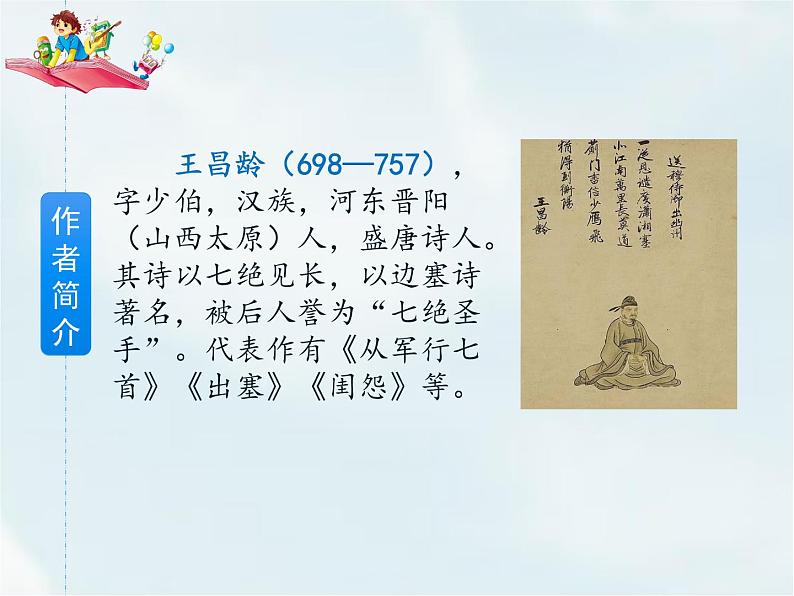 作者简介
王昌龄（698—757），
字少伯，汉族，河东晋阳
（山西太原）人，盛唐诗人。
其诗以七绝见长，以边塞诗
著名，被后人誉为“七绝圣
手”。代表作有《从军行七
首》《出塞》《闺怨》等。
送穆侍御出幽州
一从恩谴度潇湘塞
北江南万里长莫道
蓟门书信少雁飞
犹得到衡阳
王昌龄